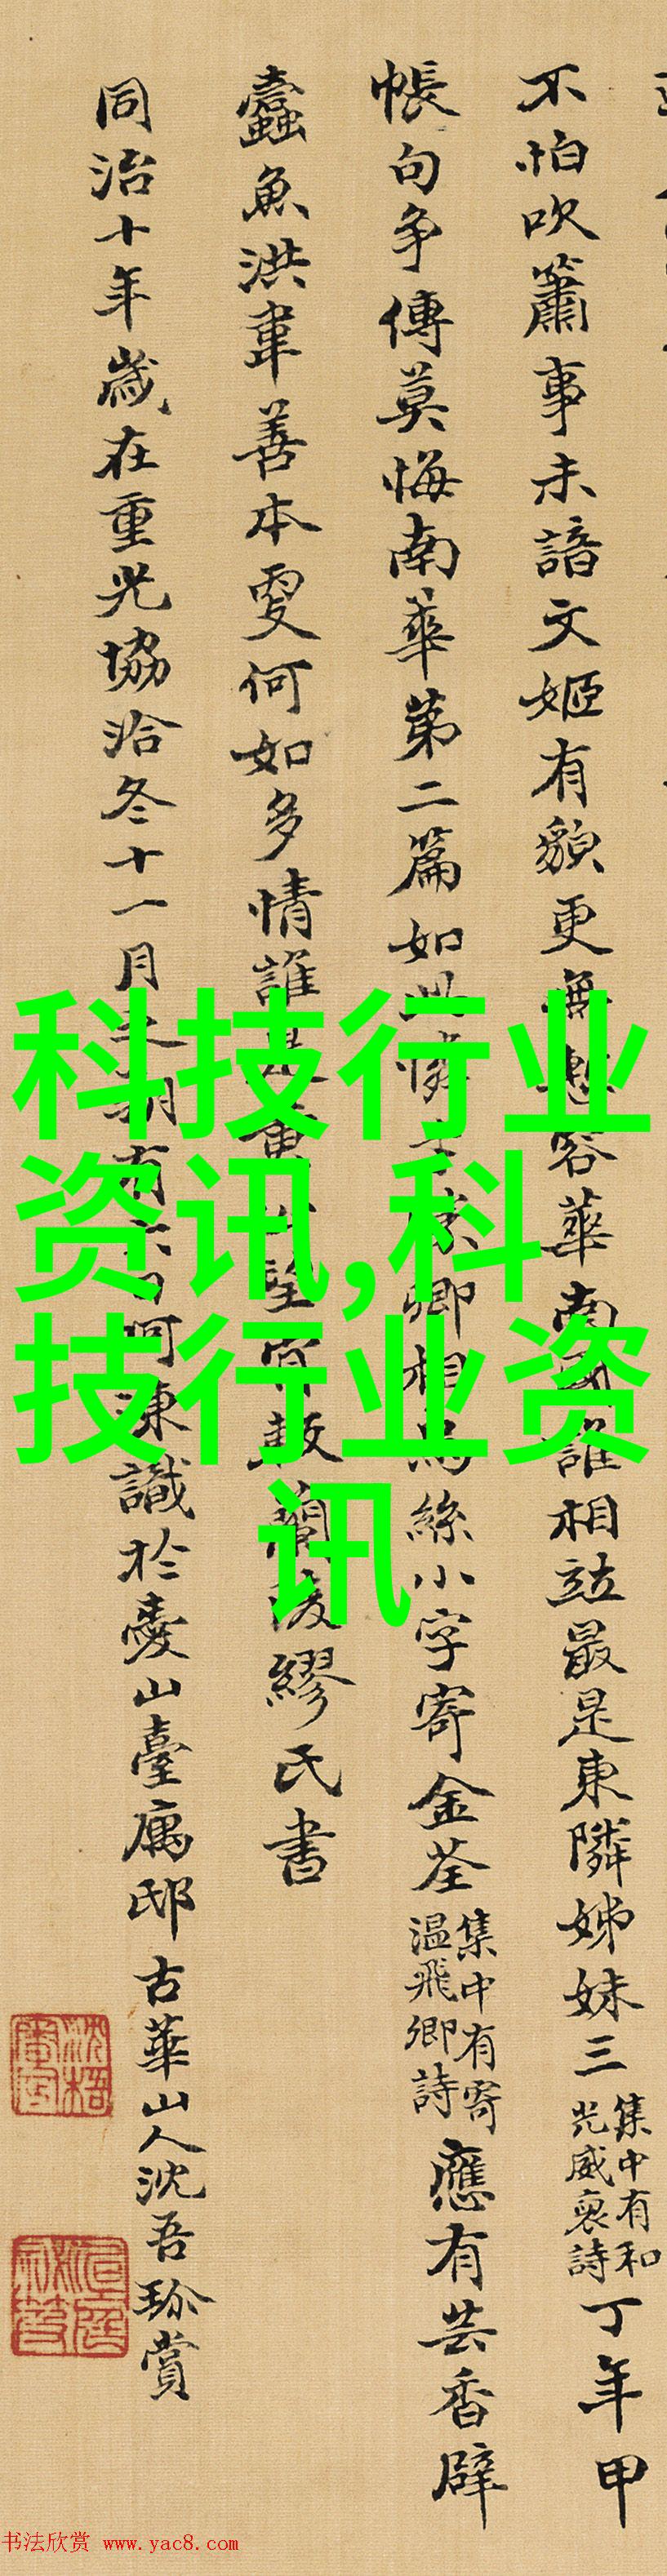 不怕吹簫事未諳文姬有貌更無愁容華南國誰相竝最是東隣姊妹三集中有和光威裒詩丁年甲
帳句争傳莫悔南華第二篇如此憐才魚卿相烏絲小字寄金荃集中有寄温飛卿詩應有芸香辟
蠹魚洪韋善本更何如多情誰是黃
繆氏書
同治十年歲在重光協洽冬十一月
有六日呵凍識於
山臺寓邸古華山人沈吾珎賞
科技行业
资讯,科
技行业资
讯
书法欣赏 www.yac8.com